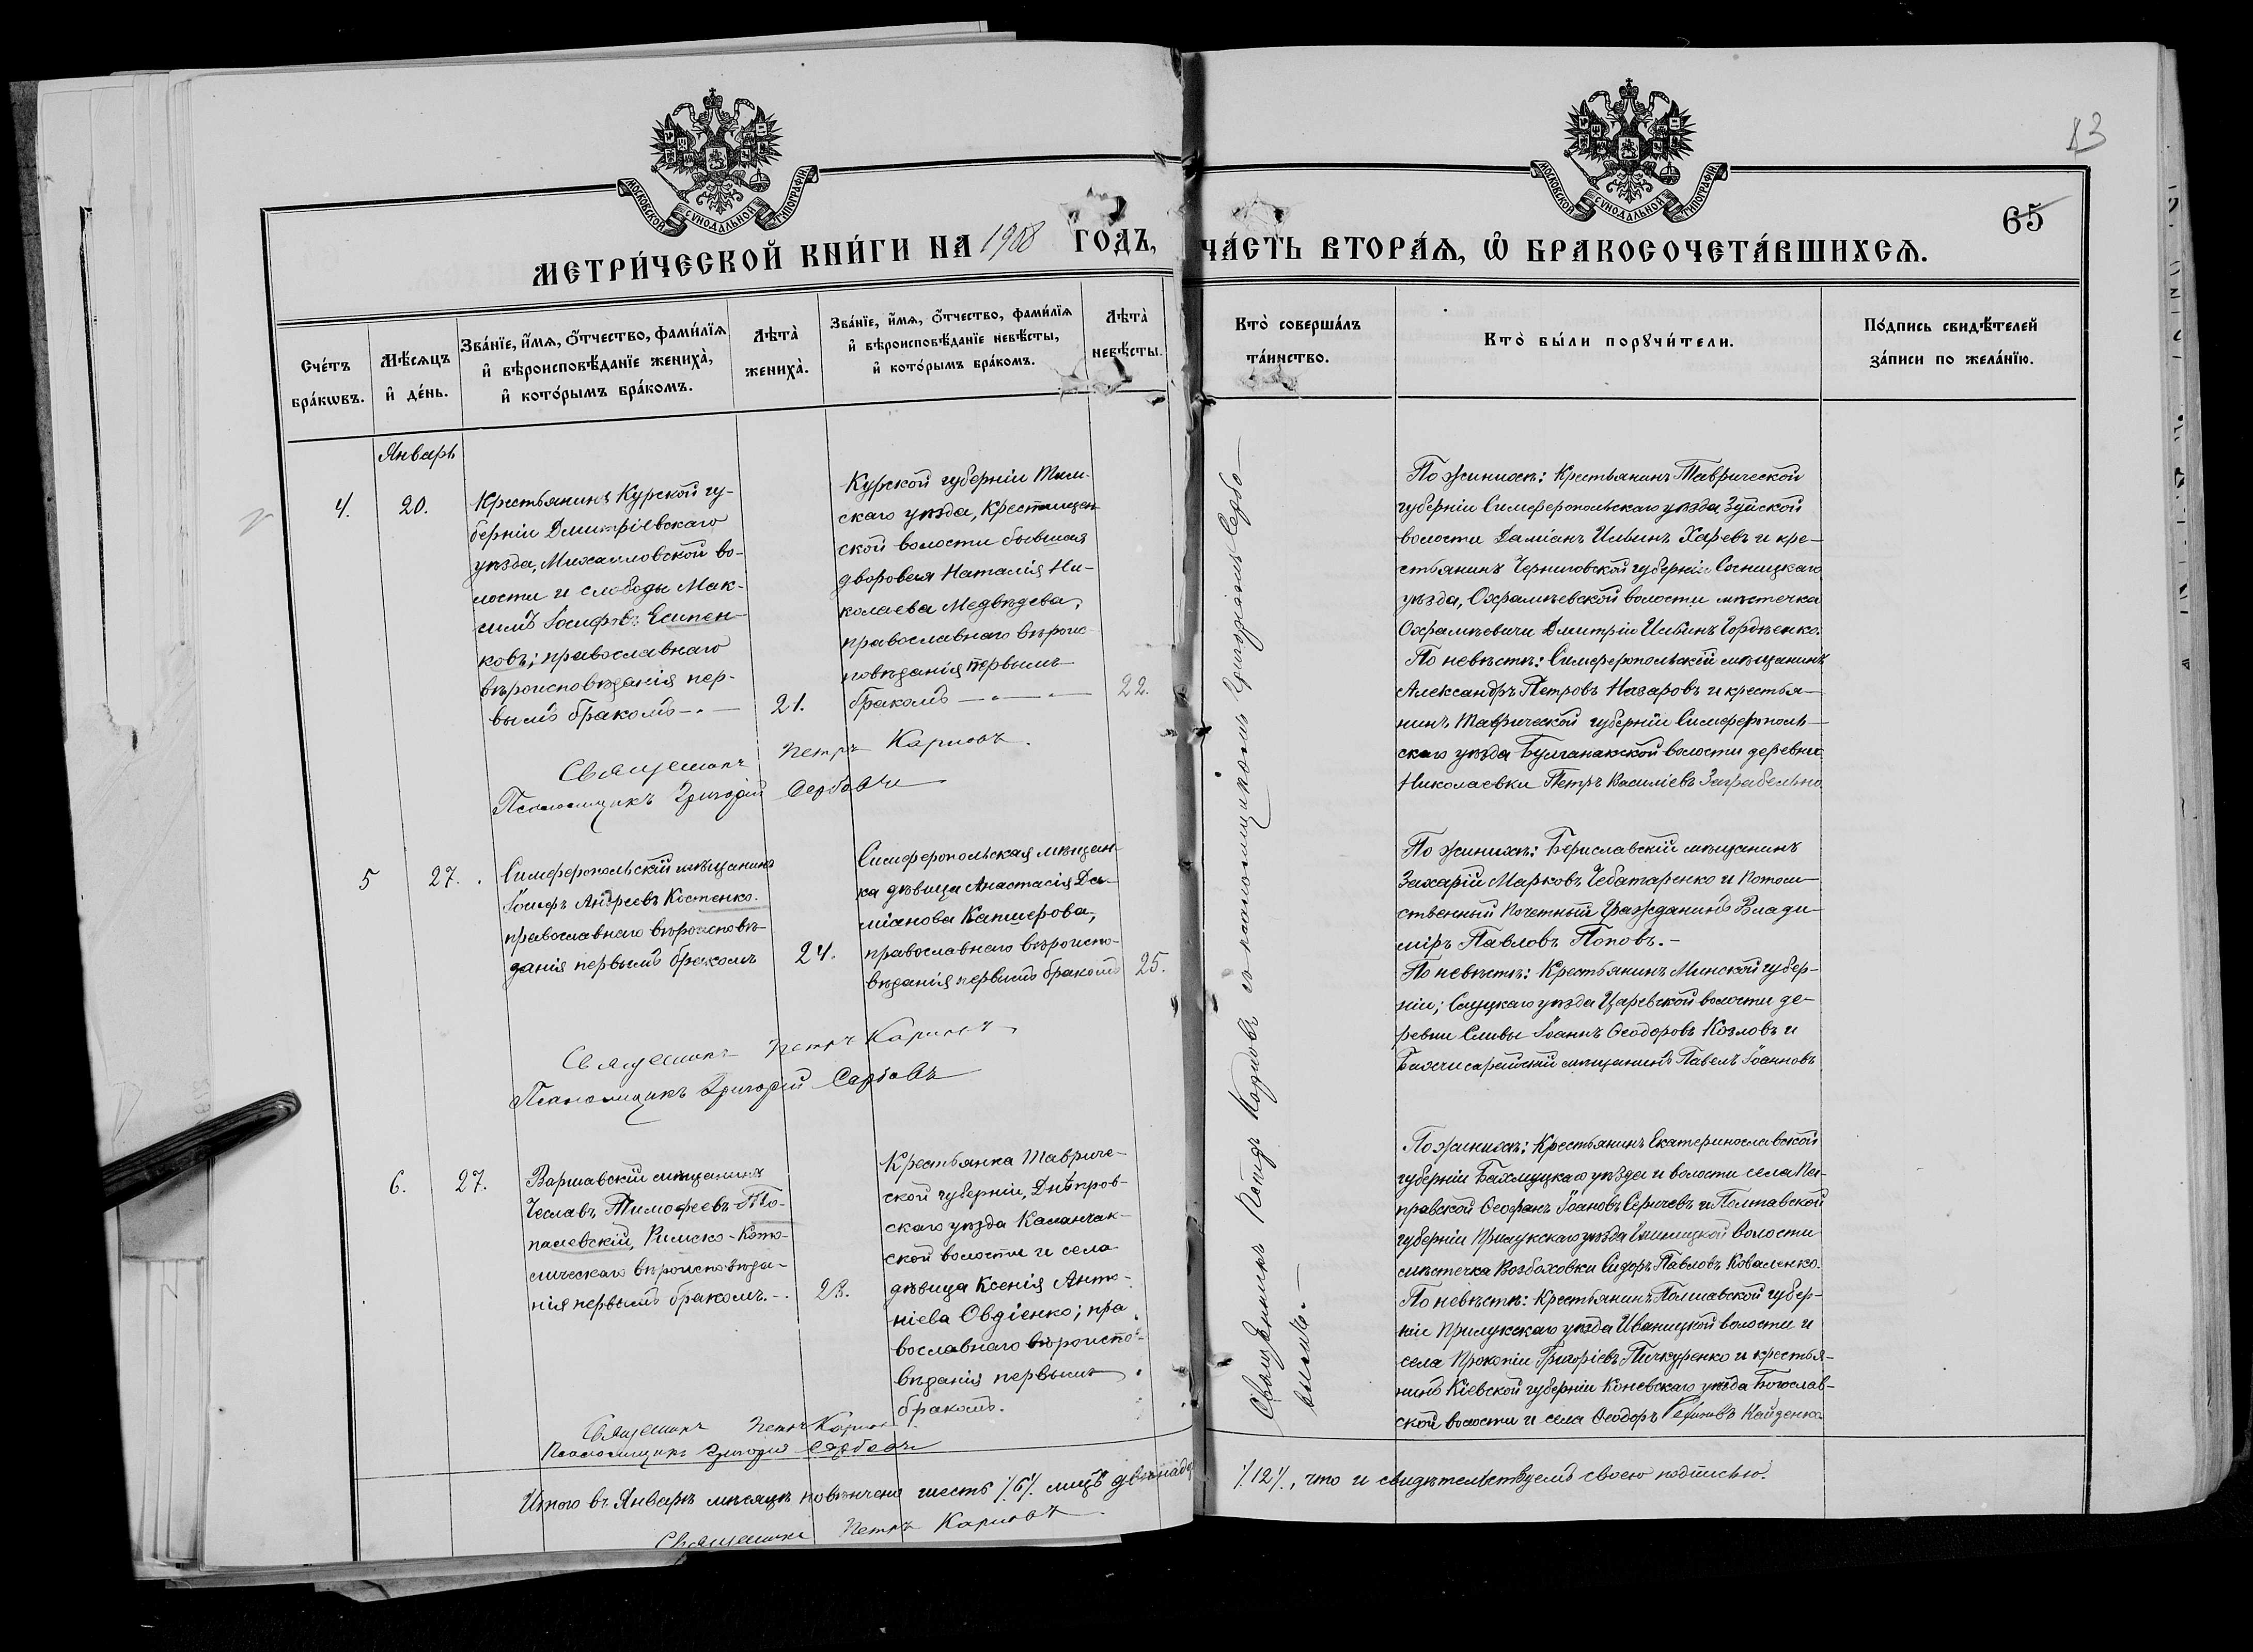 МОСКОВСКОЙ СѴНОДАЛЬНОЙ ТИПОГРАФІИ
МОСКОВСКОЙ СѴНОДАЛЬНОЙ ТИПОГРАФІИ
13
65
МЕТРИ́ЧЕСКОЙ КНИ́ГИ НА 1908 ГОДЪ,
ЧА́СТЬ ВТОРА́Ѧ, Ѽ БРАКОСОЧЕТА́ВШИХСѦ.
Сче́тъ
бра́кѡвъ.
Мѣ́сѧцъ
и҆ де́нь.
Зва́нїе, и҆́мѧ, ѻ҆́тчество, фами́лїѧ
и҆ вѣроисповѣ́данїе жениха̀,
и҆ кото́рымъ бра́комъ.
Лѣта̀
жениха̀.
Зва́нїе, и҆́мѧ, ѻ҆́тчество, фами́лїѧ
и҆ вѣроисповѣ́данїе невѣ́сты,
и҆ кото́рымъ бра́комъ.
Лѣта̀
невѣ́сты.
Кто̀ соверша́лъ
та́инство.
Кто̀ бы́ли порꙋчи́тели.
По́дпись свидѣ́телей
за́писи по жела́нїю.
Январь
4.
20.
Крестьянинъ Курской гу-
берніи Дмитріевскаго
уѣзда, Михайловской во-
лости и слободы Мак-
симъ Іосифовъ Есипен-
ковъ; православнаго
вѣроисповѣданія пер-
вымъ бракомъ
21.
Курской губерніи Тим-
скаго уѣзда,
ской волости бывшая
дворовая Наталія Ни-
колаева Медвѣдева,
православнаго вѣроис-
повѣданія первымъ
бракомъ
22.
Священникъ Петръ Карповъ.
Псаломщикъ Григорій Сербовъ
По женихѣ: Крестьянинъ Таврической
губерніи Симферопольскаго уѣзда Зуйской
волости Даміанъ Ильинъ Харевъ и кре-
стьянинъ Черниговской губерніи Сосницкаго
уѣзда, Охрамѣевской волости мѣстечка
Охрамѣевичи Дмитрій Ильинъ Гордѣенко.
По невѣстѣ: Симферопольскій мѣщанинъ
Александръ Петровъ Назаровъ и крестья-
нинъ Таврической губерніи Симферополь-
скаго уѣзда Булганакской волости деревни
Николаевки Петръ Василіевъ Заграбельно.
5
27.
Симферопольскій мѣщанинъ
Іосифъ Андреевъ Костенко.
православнаго вѣроисповѣ-
данія первымъ бракомъ
24.
Симферопольская мѣщан-
ка дѣвица Анастасія Да-
міанова Капшерова,
православнаго вѣроиспо-
вѣданія первымъ бракомъ
25.
Священникъ Петръ Карповъ
Псаломщикъ Григорій Сербовъ
По женихѣ: Бериславскій мѣщанинъ
Захарій Марковъ Чеботаренко и Потом-
ственный Почетный Гражданинъ Влади-
міръ Павловъ Поповъ.-
По невѣстѣ: Крестьянинъ Минской губер-
ніи; Слуцкаго уѣзда Царевской волости де-
ревни Сливы Іоаннъ Ѳеодоровъ Козловъ и
Бахчисарайскій мѣщанинъ Павелъ Іоанновъ
6.
27.
Варшавскій мѣщанинъ
Чеславъ Тимофеевъ То-
палевскій, Римско-Като-
лическаго вѣроисповѣда-
нія первымъ бракомъ.-
28.
Крестьянка Тавриче-
ской губерніи, Днѣпров-
скаго уѣзда Каланчак-
ской волости и села
дѣвица Ксенія Анто-
ніева Овдіенко; пра-
вославнаго вѣроиспо-
вѣданія первымъ
бракомъ.
Священникъ Петръ Карповъ
Псаломщикъ Григорій Сербовъ
По женихѣ: Крестьянинъ Екатеринославской
губерніи Бахмуцкаго уѣзда и волости села По-
правской Ѳеофанъ Іоановъ и Полтавской
губерніи Прилукскаго уѣзда волости
мѣстечка Сидоръ Павловъ Коваленко.
По невѣстѣ: Крестьянинъ Полтавской губер-
ніи Прилукскаго уѣзда Иваницкой волости и
села Прокопій Григорьевъ Пичкуренко и крестья-
нинъ Кіевской губерніи Каневскаго уѣзда Богослав-
ской волости и села Ѳеодоръ Найденко
Священникъ съ псаломщикомъ Григоріемъ Сербо-
вымъ.-
Итого въ Январѣ мѣсяцѣ повѣнчано шесть /6/. лицъ двѣнадц
/12/., что и свидѣтельствуемъ своею подписью.
Священникъ Петръ Карповъ